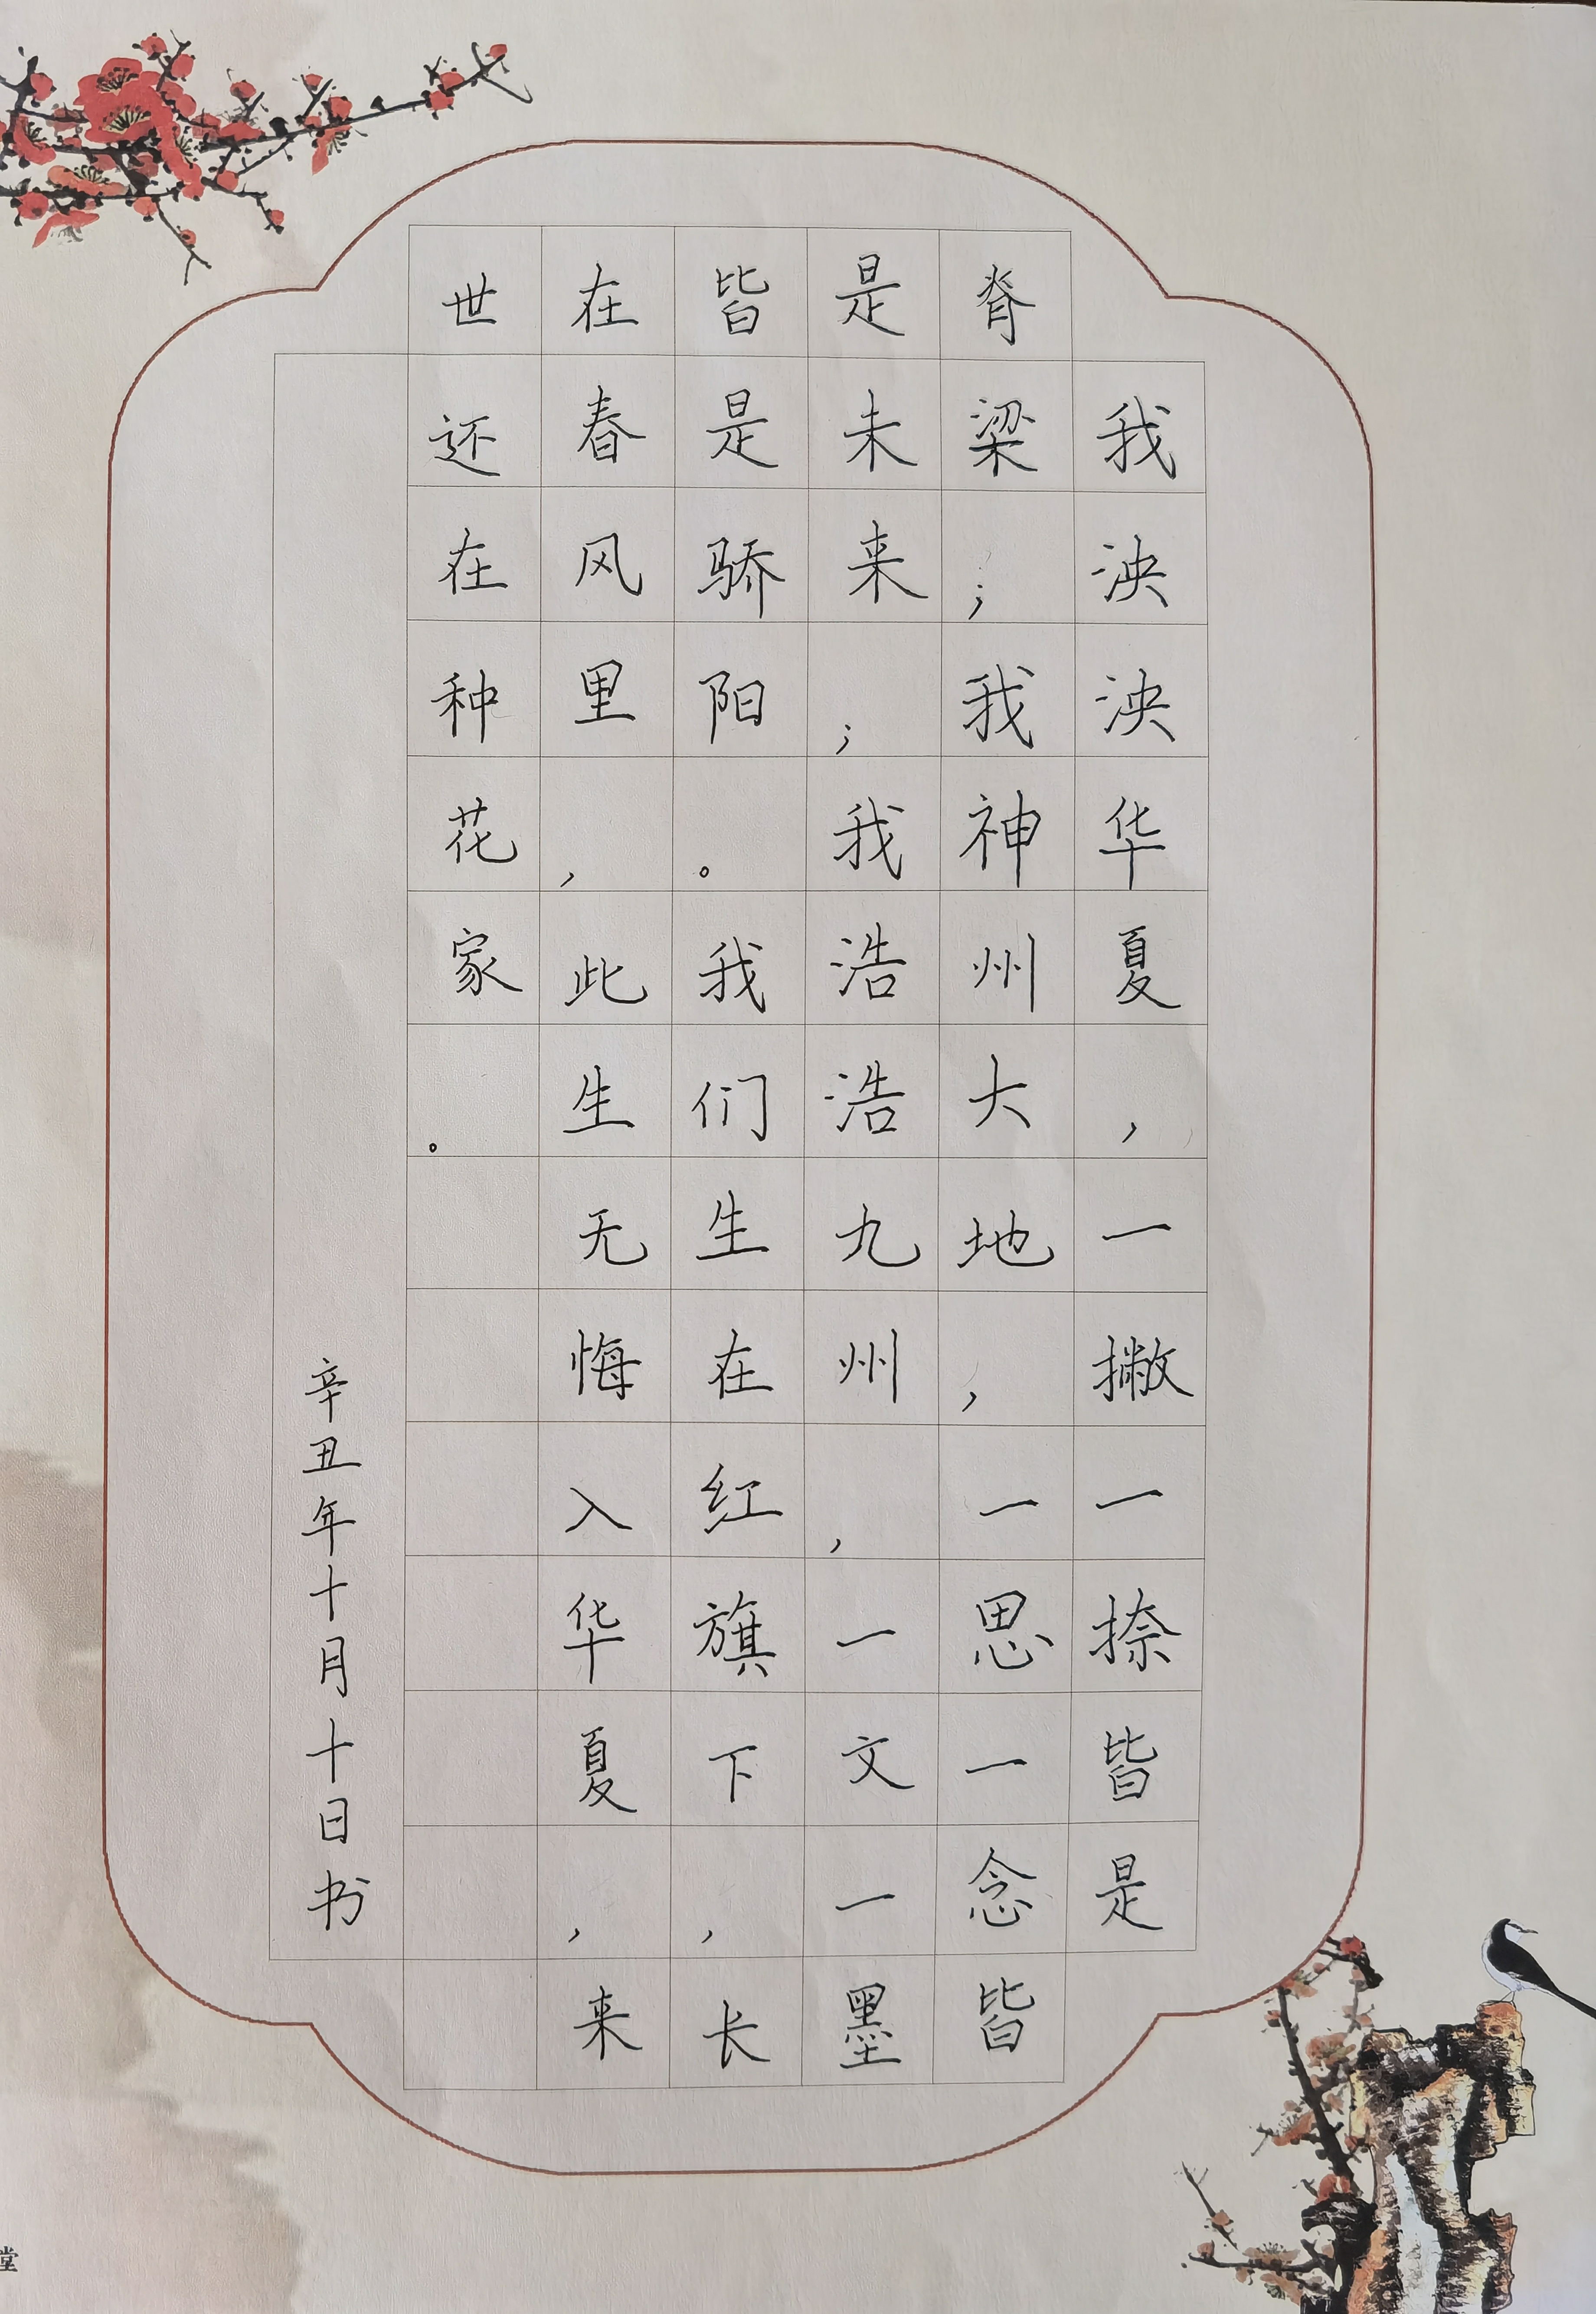 我泱泱华夏，一撇一捺皆是
脊梁；我神州大地，一思一念皆
是未来；我浩浩九州，一文一墨
皆是骄阳。我们生在红旗下，长
在春风里，此生无悔入华夏，来
世还在种花家。
辛丑年十月十日书
堂